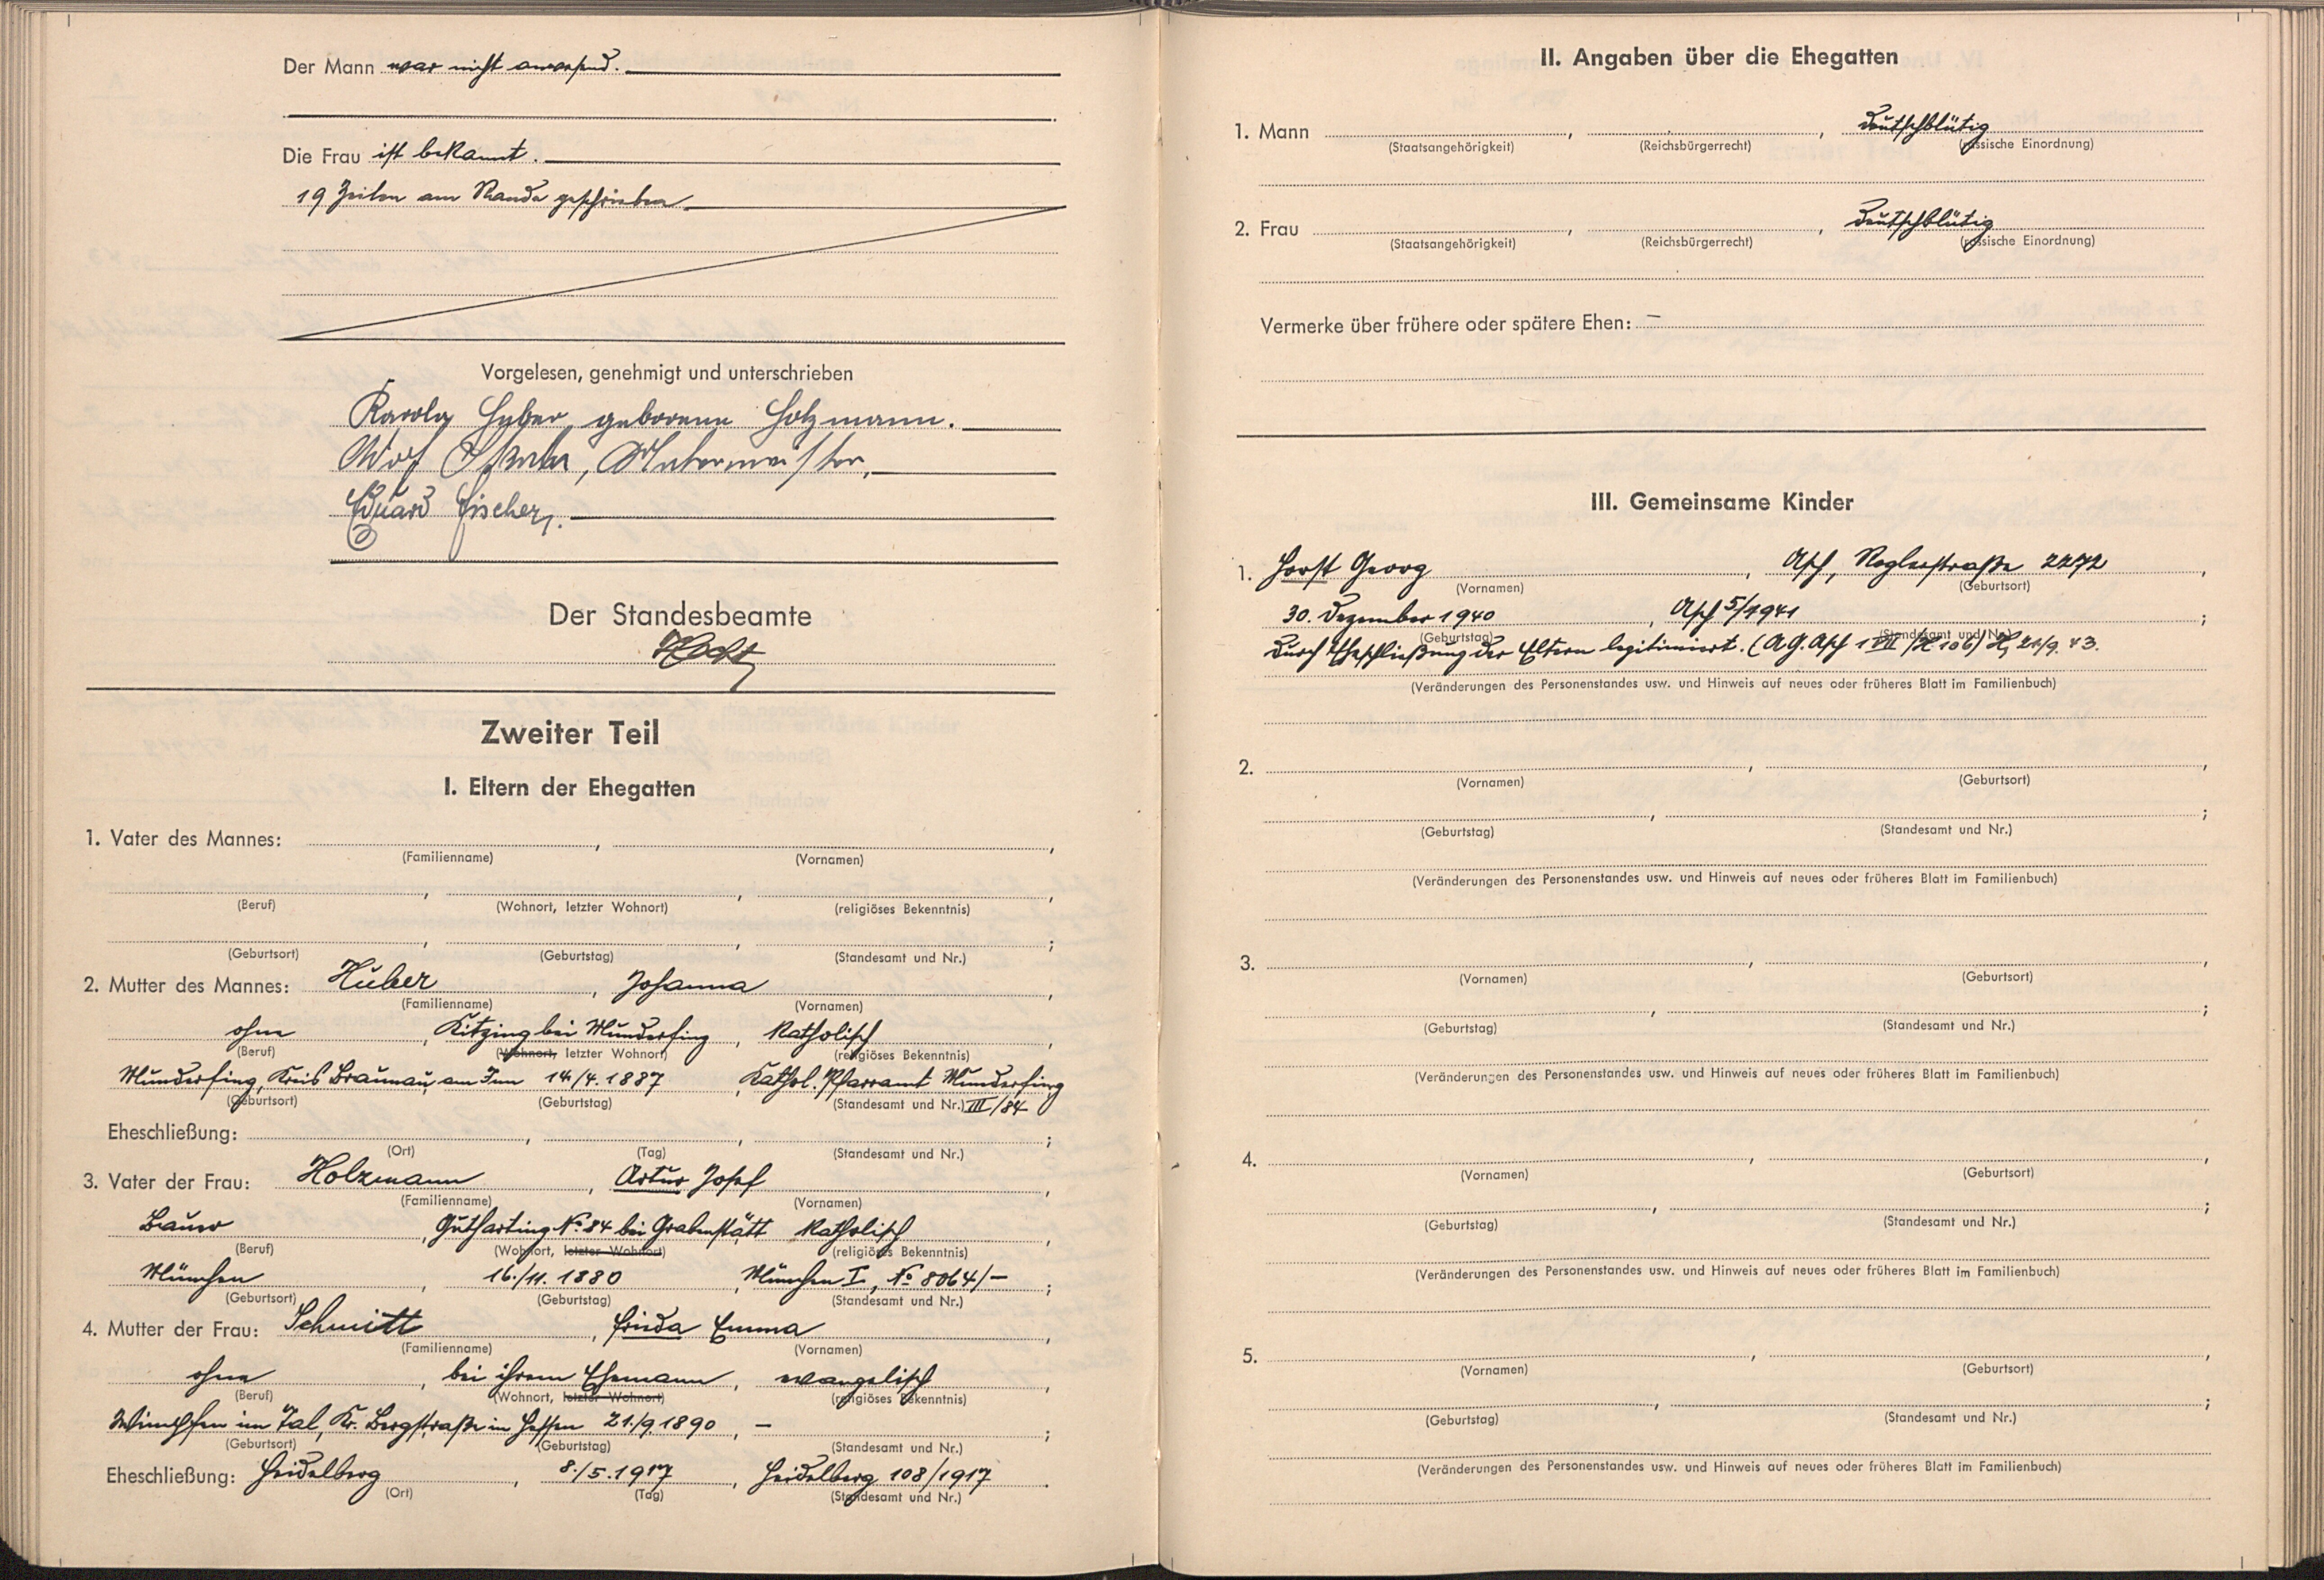 Der Mann war nicht anwesend.
Die Frau ist bekannt.
19 Zeilen am Rande geschrieben
Vorgelesen, genehmigt und unterschrieben
Karola Huber geborene Holzmann.
Eduard Fischer,.
Der Standesbeamte
Zweiter Teil
I. Eltern der Ehegatten
1. Vater des Mannes: , ,
(Familienname) (Vornamen)
, , ,
(Beruf) (Wohnort, letzter Wohnort) (religiöses Bekenntnis)
, , ;
(Geburtsort) (Geburtstag) (Standesamt und Nr.)
2. Mutter des Mannes: Huber , Johanna ,
(Familienname) (Vornamen)
ohne , Kitzing bei Munderfing , katholisch ,
(Beruf) (Wohnort, letzter Wohnort) (religiöses Bekenntnis)
Munderfing, Kreis Braunau am Inn 14./4.1887 , Kathol. Pfarramt Munderfing
(Geburtsort) (Geburtstag) (Standesamt und Nr.) III/84
Eheschließung: , , ;
(Ort) (Tag) (Standesamt und Nr.)
3. Vater der Frau: Holzmann , Artur Josef ,
(Familienname) (Vornamen)
Bauer , Gutharting No. 84 bei Grabenstätt katholisch ,
(Beruf) (Wohnort, letzter Wohnort) (religiöses Bekenntnis)
München , 16./11.1880 , München I, No 8064/– ;
(Geburtsort) (Geburtstag) (Standesamt und Nr.)
4. Mutter der Frau: Schmitt , Frieda Emma ,
(Familienname) (Vornamen)
ohne , bei ihrem Ehemann , evangelisch ,
(Beruf) (Wohnort, letzter Wohnort) (religiöses Bekenntnis)
Wimpfen im Tal, Kr. Bergstraße in Hessen 21./9.1890 , – ;
(Geburtsort) (Geburtstag) (Standesamt und Nr.)
Eheschließung: Heidelberg , 8./5.1917 , Heidelberg 108/1917 .
(Ort) (Tag) (Standesamt und Nr.)
II. Angaben über die Ehegatten
1. Mann , , deutschblütig
(Staatsangehörigkeit) (Reichsbürgerrecht) (rassische Einordnung)
2. Frau , , deutschblütig
(Staatsangehörigkeit) (Reichsbürgerrecht) (rassische Einordnung)
Vermerke über frühere oder spätere Ehen: –
III. Gemeinsame Kinder
1. Horst Georg , Asch, Roglerstraße 2272 ,
(Vornamen) (Geburtsort)
30. Dezember 1940 , Asch 5/1941 ;
(Geburtstag) (Standesamt und Nr.)
durch Eheschließung der Eltern legitimiert. (AG. Asch 1 VII /H 106) H, 21/9. 43.
(Veränderungen des Personenstandes usw. und Hinweis auf neues oder früheres Blatt im Familienbuch)
2. , ,
(Vornamen) (Geburtsort)
, ;
(Geburtstag) (Standesamt und Nr.)
(Veränderungen des Personenstandes usw. und Hinweis auf neues oder früheres Blatt im Familienbuch)
3. , ,
(Vornamen) (Geburtsort)
, ;
(Geburtstag) (Standesamt und Nr.)
(Veränderungen des Personenstandes usw. und Hinweis auf neues oder früheres Blatt im Familienbuch)
4. , ,
(Vornamen) (Geburtsort)
, ;
(Geburtstag) (Standesamt und Nr.)
(Veränderungen des Personenstandes usw. und Hinweis auf neues oder früheres Blatt im Familienbuch)
5. , ,
(Vornamen) (Geburtsort)
, ;
(Geburtstag) (Standesamt und Nr.)
(Veränderungen des Personenstandes usw. und Hinweis auf neues oder früheres Blatt im Familienbuch)